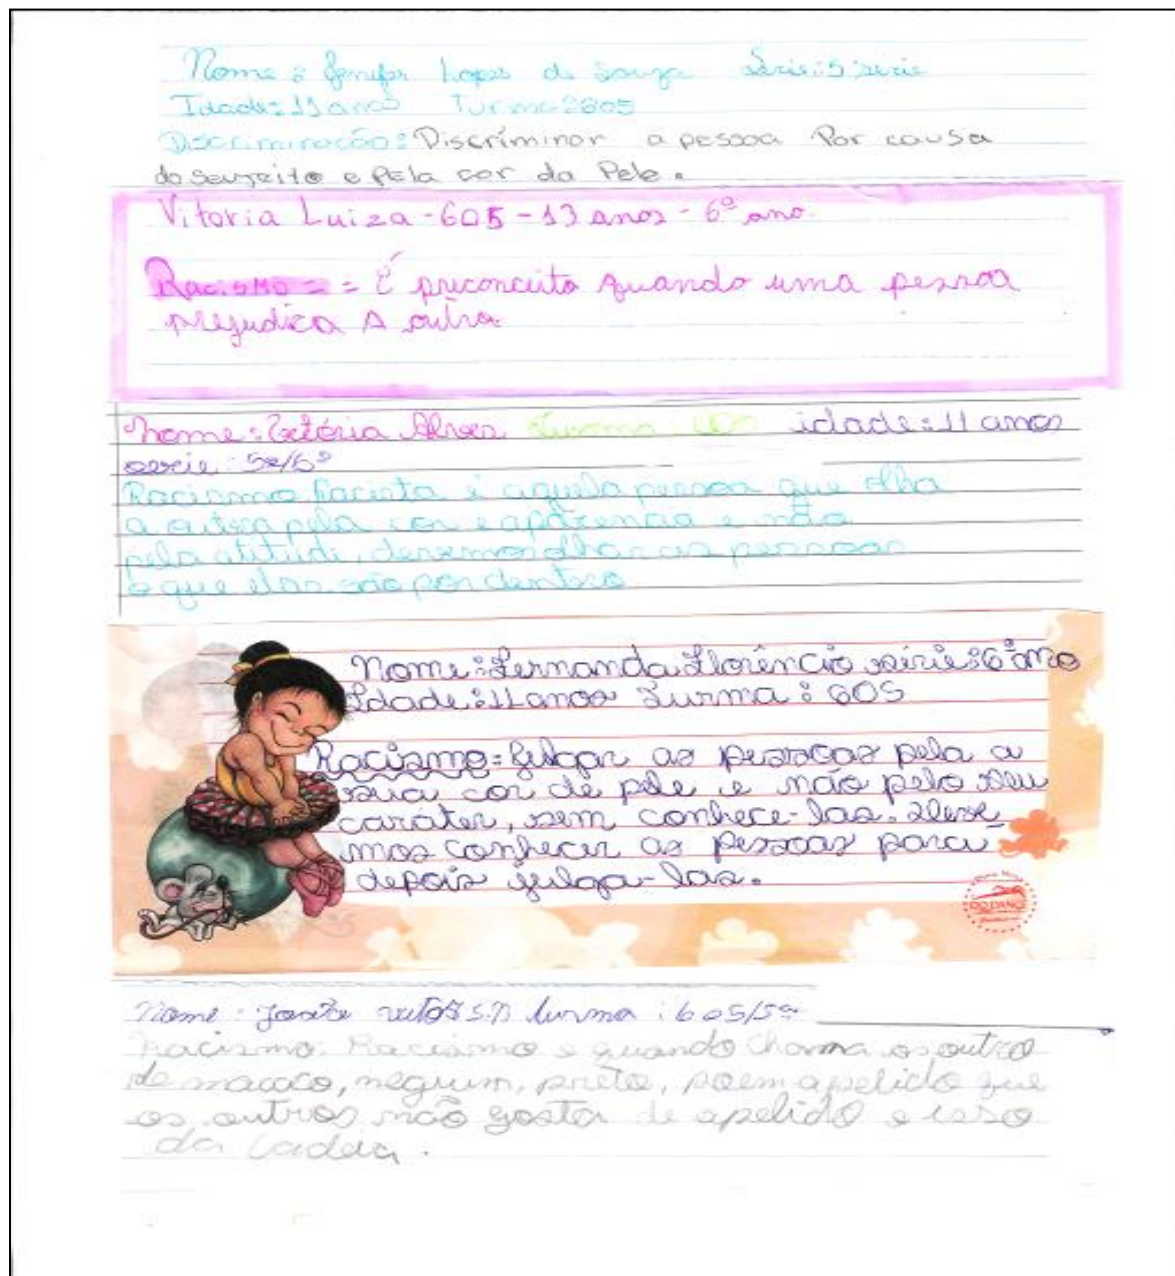 Nome: Jenifer Lopes de Souza Série: 5 série
Idade: 11 anos Turma: 605
Discriminação: Discríminor a pessoa Por causa
do seu jeito e pela cor da Pele.
Vitoria Luiza - 605 - 13 anos - 6º ano.
Racismo = = É preconceito quando uma pessoa
prejudica A outra
Nome: Vitória Alves turma: 605 idade: 11 anos
serie: 5ª/6º
Racismo Racista é aquela pessoa que olha
a outra pela cor e aparencia e não
pela atitude, devemos olhar as pessoas
o que elas são por dentro
Nome: Fernanda Florêncio série: 6º ano
Idade: 11 anos Turma: 605
Racismo: Julgar as pessoas pela a
sua cor de pele e não pelo seu
caráter, sem conhece-las. Deve-
mos conhecer as pessoas para
depois julga-las.
Nome: turma: 605/5ª
Racismo: Racismo e quando chama os outro
de macaco, neguim, preto, poem apelido que
os outros não gosta de apelido e isso
da cadeia.